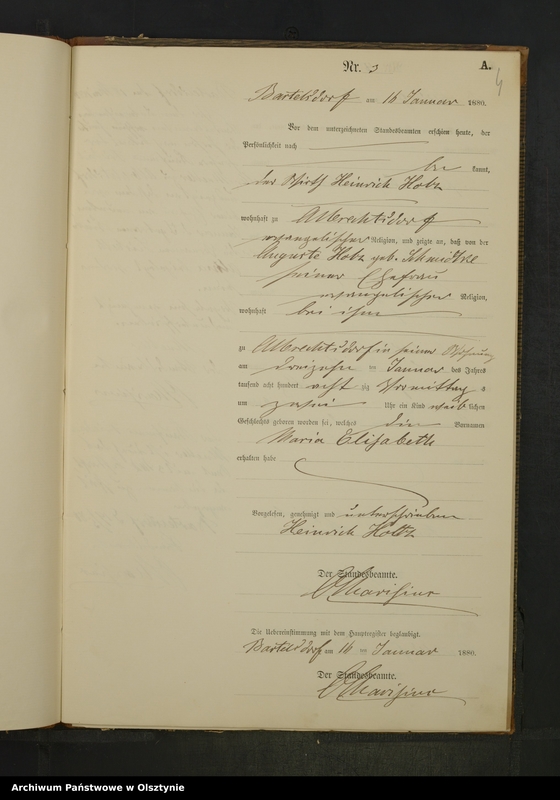 Nr. 3 A.
4
Bartelsdorf am 16 Januar 1880.
Vor dem unterzeichneten Standesbeamten erschien heute, der
Persönlichkeit nach
be kannt,
der Wirth Heinrich Holtz
wohnhaft zu Albrechtsdorf
evangelischer Religion, und zeigte an, daß von der
Auguste Holtz geb.
seiner Ehefrau
evangelischer Religion,
wohnhaft bei ihm
zu Albrechtsdorf in seiner Wohnung
am dreizehn ten Januar des Jahres
tausend acht hundert acht zig Vormittag s
um Uhr ein Kind weib lichen
Geschlechts geboren worden sei, welches die Vornamen
Maria Elisabeth
erhalten habe
Vorgelesen, genehmigt und unterschrieben
Heinrich Holtz
Der Standesbeamte.
Die Uebereinstimmung mit dem Hauptregister beglaubigt.
Bartelsdorf am 16 ten Januar 1880.
Der Standesbeamte.
Archiwum Państwowe w Olsztynie